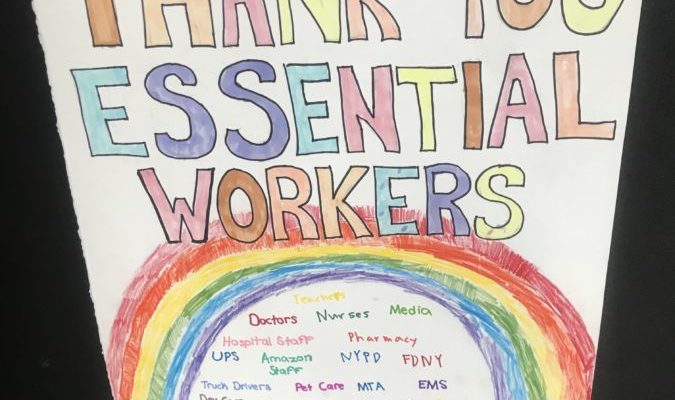 THANK YOU
ESSENTIAL
WORKERS
Teachers
Doctors Nurses Media
Hospital Staff Pharmacy
UPS Amazon Staff NYPD FDNY
Truck Drivers Pet Care MTA EMS